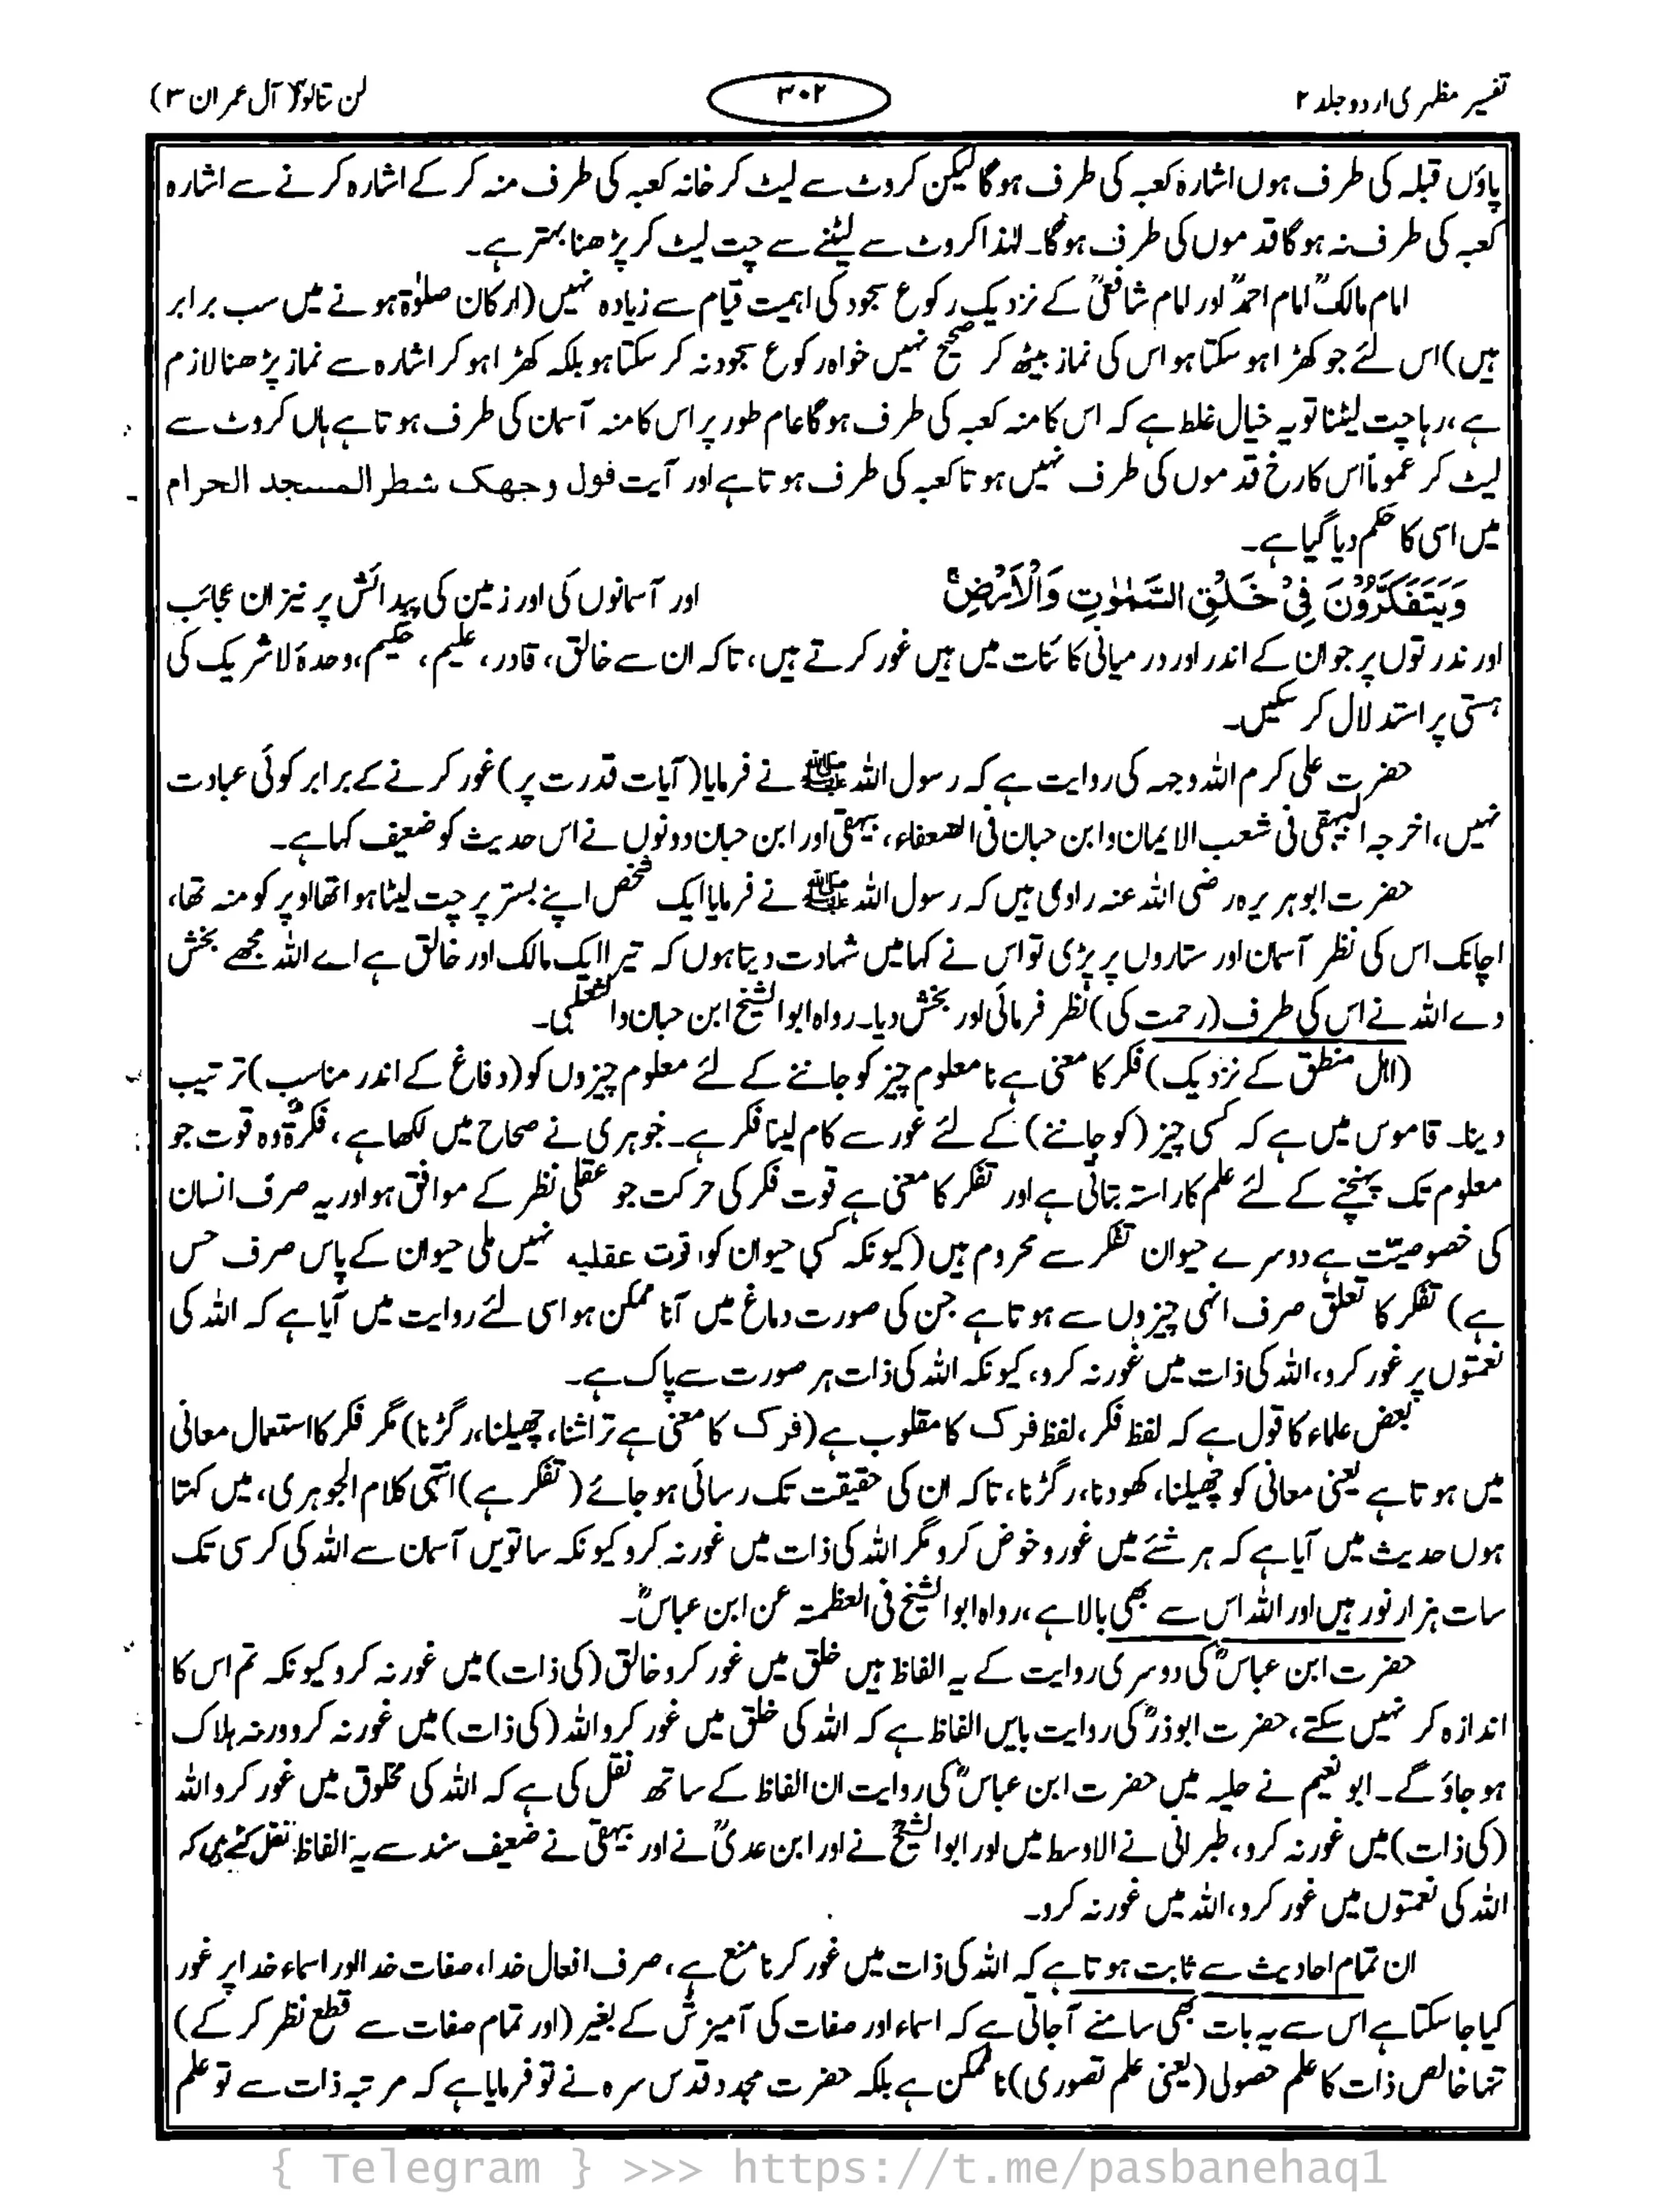 تفسیر مظہری اردو جلد ۲
۳۰۲
لن تنالوا (آل عمران ۳)
پاؤں قبلہ کی طرف ہوں اشارہ کعبہ کی طرف ہوگا لیکن کروٹ سے لیٹ کر خانہ کعبہ کی طرف منہ کر کے اشارہ کرنے سے اشارہ
کعبہ کی طرف نہ ہوگا قدموں کی طرف ہوگا۔ لہٰذا کروٹ سے لیٹنے سے چت لیٹ کر پڑھنا بہتر ہے۔
امام مالکؒ امام احمدؒ اور امام شافعیؒ کے نزدیک رکوع سجود کی اہمیت قیام سے زیادہ نہیں (ارکان صلوٰۃ ہونے میں سب برابر
ہیں) اس لئے جو کھڑا ہو سکتا ہو اس کی نماز بیٹھ کر صحیح نہیں خواہ رکوع سجود نہ کر سکتا ہو بلکہ کھڑا ہو کر اشارہ سے نماز پڑھنا لازم
ہے، رہا چت لیٹنا تو یہ خیال غلط ہے کہ اس کا منہ کعبہ کی طرف ہوگا عام طور پر اس کا منہ آسمان کی طرف ہوتا ہے ہاں کروٹ سے
لیٹ کر عموماً اس کا رخ قدموں کی طرف نہیں ہوتا کعبہ کی طرف ہوتا ہے اور آیت فول وجهك شطر المسجد الحرام
میں اسی کا حکم دیا گیا ہے۔
وَيَتَفَكَّرُوْنَ فِيْ خَلْقِ السَّمٰوٰتِ وَالْاَرْضِۚ اور آسمانوں کی اور زمین کی پیدائش پر نیز ان عجائب
اور ندرتوں پر جو ان کے اندر اور درمیانی کائنات میں ہیں غور کرتے ہیں، تاکہ ان سے خالق، قادر، علیم، حکیم، وحدہٗ لاشریک کی
ہستی پر استدلال کر سکیں۔
حضرت علی کرم اللہ وجہہ کی روایت ہے کہ رسول اللہ ﷺ نے فرمایا (آیات قدرت پر) غور کرنے کے برابر کوئی عبادت
نہیں، اخرجہ البیہقی فی شعب الایمان وابن حبان فی الضعفاء، بیہقی اور ابن حبان دونوں نے اس حدیث کو ضعیف کہا ہے۔
حضرت ابوہریرہ رضی اللہ عنہ راوی ہیں کہ رسول اللہ ﷺ نے فرمایا ایک شخص اپنے بستر پر چت لیٹا ہوا تھا اوپر کو منہ تھا،
اچانک اس کی نظر آسمان اور ستاروں پر پڑی تو اس نے کہا میں شہادت دیتا ہوں کہ تیرا ایک مالک اور خالق ہے اے اللہ مجھے بخش
دے اللہ نے اس کی طرف (رحمت کی) نظر فرمائی اور بخش دیا۔ رواہ ابوالشیخ ابن حبان والثعلبی۔
(اہل منطق کے نزدیک) فکر کا معنی ہے نامعلوم چیز کو جاننے کے لئے معلوم چیزوں کو (دفاغ کے اندر مناسب) ترتیب
دینا۔ قاموس میں ہے کہ کسی چیز (کو جاننے) کے لئے غور سے کام لینا فکر ہے۔ جوہری نے صحاح میں لکھا ہے، فکرۃٌ وہ قوت جو
معلوم تک پہنچنے کے لئے علم کا راستہ بتاتی ہے اور تفکر کا معنی ہے قوت فکر کی حرکت جو عقلی نظر کے موافق ہو اور یہ صرف انسان
کی خصوصیّت ہے دوسرے حیوان تفکر سے محروم ہیں (کیونکہ کسی حیوان کو قوت عقلیہ نہیں ملی حیوان کے پاس صرف حس
ہے) تفکر کا تعلق صرف انہی چیزوں سے ہوتا ہے جن کی صورت دماغ میں آنا ممکن ہو اسی لئے روایت میں آیا ہے کہ اللہ کی
نعمتوں پر غور کرو، اللہ کی ذات میں غور نہ کرو، کیونکہ اللہ کی ذات ہر صورت سے پاک ہے۔
بعض علماء کا قول ہے کہ لفظ فکر، لفظ فرک کا مقلوب ہے (فرک کا معنی ہے تراشنا، چھیلنا، رگڑنا) مگر فکر کا استعمال معانی
میں ہوتا ہے یعنی معانی کو چھیلنا، کھودنا، رگڑنا، تاکہ ان کی حقیقت تک رسائی ہو جائے (تفکر ہے) انتہی کلام الجوہری، میں کہتا
ہوں حدیث میں آیا ہے کہ ہر شئے میں غور و خوض کرو مگر اللہ کی ذات میں غور نہ کرو کیونکہ ساتویں آسمان سے اللہ کی کرسی تک
سات ہزار نور ہیں اور اللہ اس سے بھی بالا ہے، رواہ ابوالشیخ فی العظمتہ عن ابن عباسؓ۔
حضرت ابن عباسؓ کی دوسری روایت کے یہ الفاظ ہیں خلق میں غور کرو خالق (کی ذات) میں غور نہ کرو کیونکہ تم اس کا
اندازہ کر نہیں سکتے، حضرت ابوذرؓ کی روایت بایں الفاظ ہے کہ اللہ کی خلق میں غور کرو اللہ (کی ذات) میں غور نہ کرو ورنہ ہلاک
ہو جاؤ گے۔ ابو نعیم نے حلیہ میں حضرت ابن عباسؓ کی روایت ان الفاظ کے ساتھ نقل کی ہے کہ اللہ کی مخلوق میں غور کرو اللہ
(کی ذات) میں غور نہ کرو، طبرانی نے الاوسط میں اور ابوالشیخؒ نے اور ابن عدیؒ نے اور بیہقی نے ضعیف سند سے یہ الفاظ نقل کئے ہیں کہ
اللہ کی نعمتوں میں غور کرو، اللہ میں غور نہ کرو۔
ان تمام احادیث سے ثابت ہوتا ہے کہ اللہ کی ذات میں غور کرنا منع ہے، صرف افعال خدا، صفات خدا اور اسماء خدا پر غور
کیا جا سکتا ہے اس سے یہ بات بھی سامنے آ جاتی ہے کہ اسماء اور صفات کی آمیزش کے بغیر (اور تمام صفات سے قطع نظر کر کے)
تنہا خالص ذات کا علم حصولی (یعنی علم تصوری) ناممکن ہے بلکہ حضرت مجدد قدس سرہ نے تو فرمایا ہے کہ مرتبہ ذات سے تو علم
{ Telegram } >>> https://t.me/pasbanehaq1